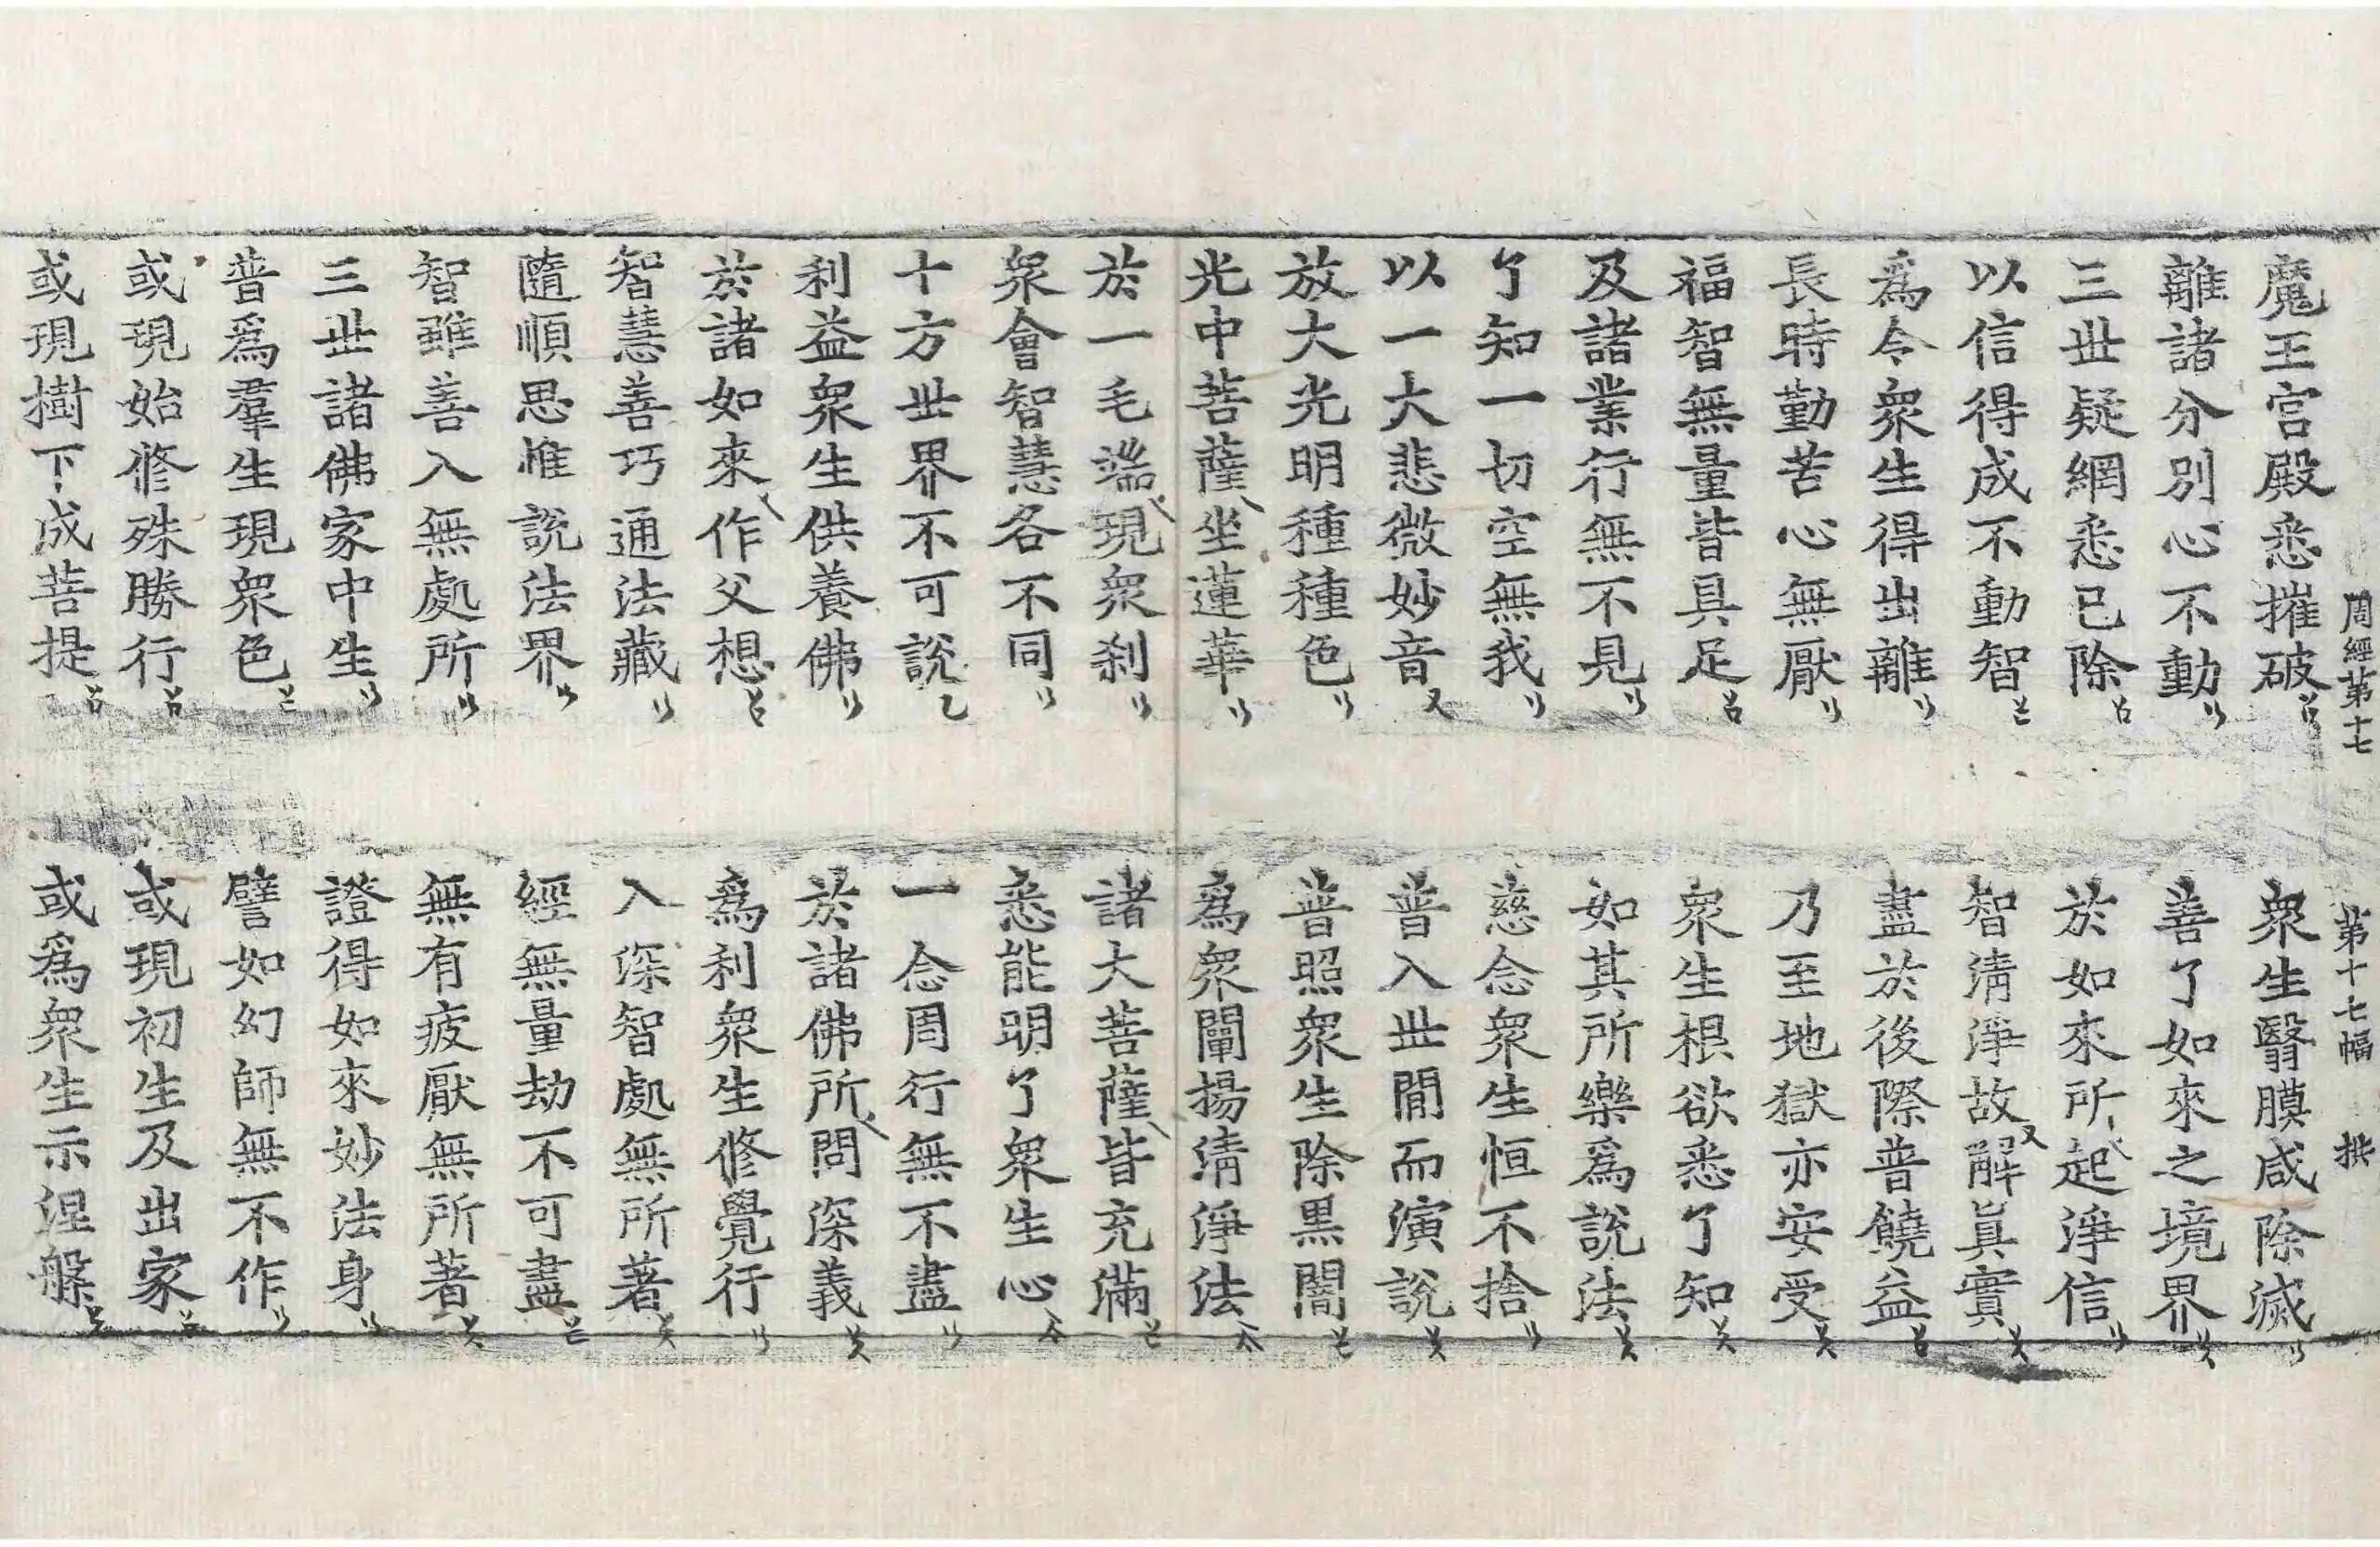 周經第十七 第十七幅 拱
魔王宮殿悉摧破 衆生瞖膜咸除滅
離諸分別心不動 善了如來之境界
三世疑網悉已除 於如來所起淨信
以信得成不動智 智清淨故解眞實
爲令衆生得出離 盡於後際普饒益
長時勤苦心無厭 乃至地獄亦安受
福智無量皆具足 衆生根欲悉了知
及諸業行無不見 如其所樂爲說法
了知一切空無我 慈念衆生恒不捨
以一大悲微妙音 普入世間而演說
放大光明種種色 普照衆生除黑闇
光中菩薩坐蓮華 爲衆闡揚清淨法
於一毛端現衆刹 諸大菩薩皆充滿
衆會智慧各不同 悉能明了衆生心
十方世界不可說 一念周行無不盡
利益衆生供養佛 於諸佛所問深義
於諸如來作父想 爲利衆生修覺行
智慧善巧通法藏 入深智處無所著
隨順思惟說法界 經無量劫不可盡
智雖善入無處所 無有疲厭無所著
三世諸佛家中生 證得如來妙法身
普爲羣生現衆色 譬如幻師無不作
或現始修殊勝行 或現初生及出家
或現樹下成菩提 或爲衆生示涅槃